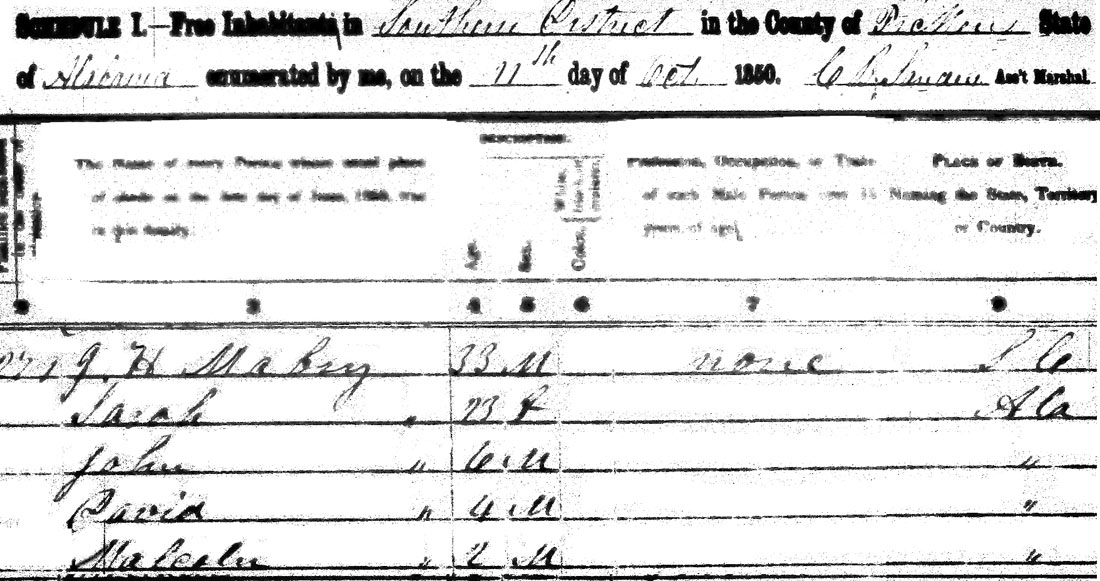 SCHEDULE I.—Free Inhabitants in Southern District in the County of Pickens State
of Alabama enumerated by me, on the 11th day of Oct. 1850. Ass't Marshal.
DESCRIPTION.
The Name of every Person whose usual place of abode on the first day of June, 1850, was in this family.
Age.
Sex.
Color,
Profession, Occupation, or Trade of each Male Person over 15 years of age.
PLACE OF BIRTH.
Naming the State, Territory,
or Country.
2 3 4 5 6 7 9
J. H Mabry 33 M none S C
Sarah " 23 F Ala
John " 6 M "
David " 4 M "
Malcolm " 2 M "